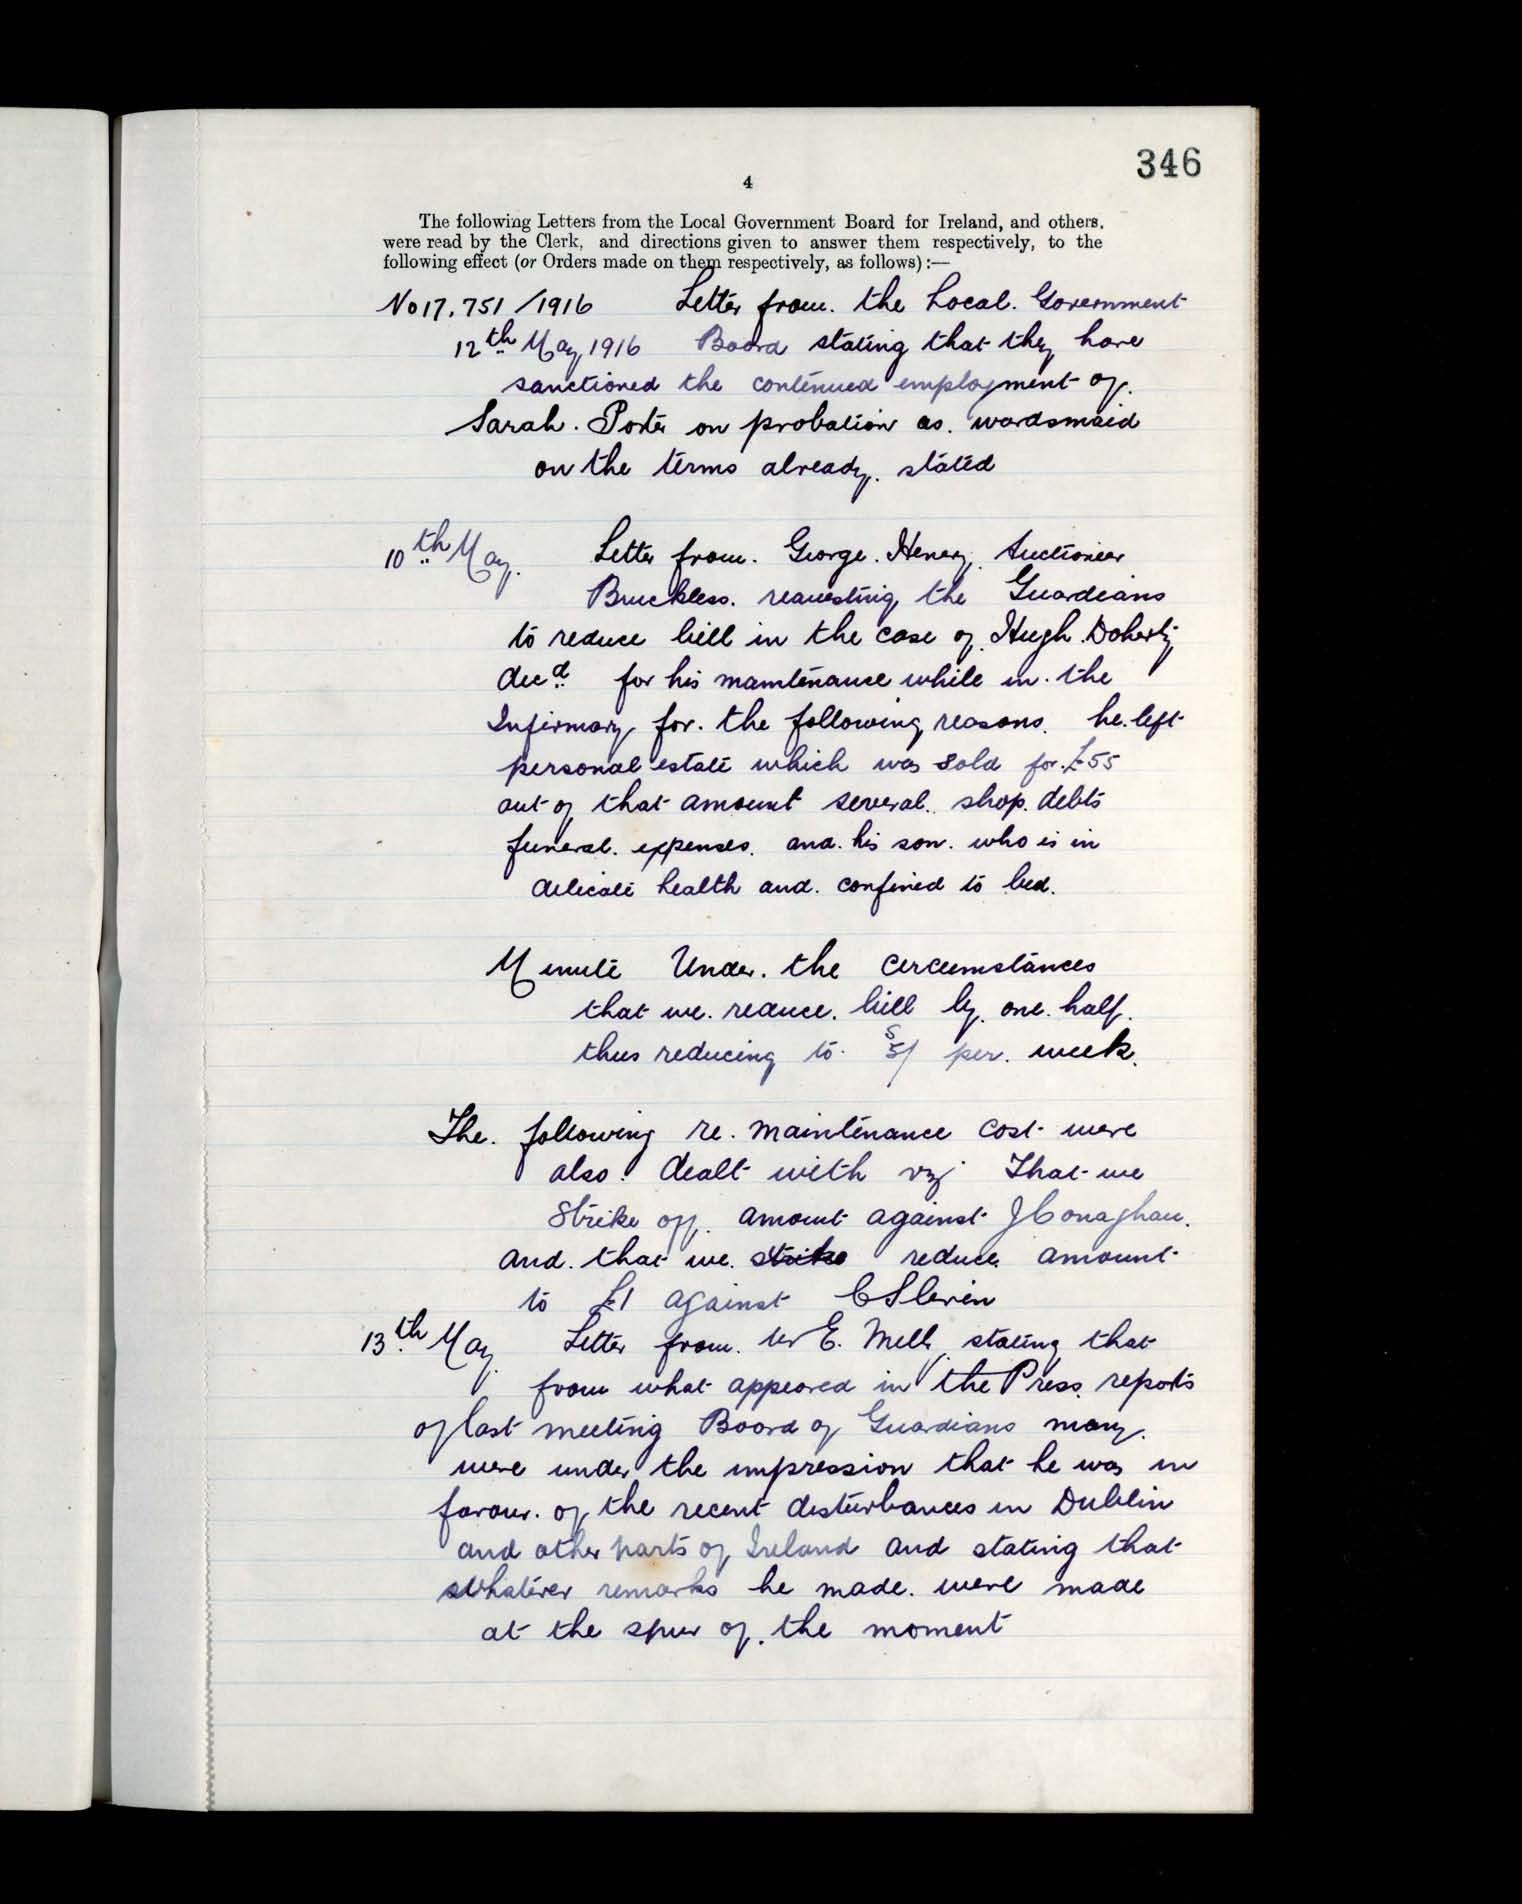 346
4
The following Letters from the Local Government Board for Ireland, and others,
were read by the Clerk, and directions given to answer them respectively, to the
following effect (or Orders made on them respectively, as follows) :—
No 17,751/1916 Letter from the Local Government
12th May 1916 Board stating that they have
sanctioned the continued employment of
Sarah Porter on probation as wardsmaid
on the terms already stated
10th May. Letter from George Henery Auctioneer
Bruckless requesting the Guardians
to reduce bill in the case of Hugh Doherty
decd for his maintenance while in the
Infirmary for the following reasons. he left
personal estate which was sold for £55
out of that amount several shop debts
funeral expenses and his son who is in
delicate health and confined to bed.
Minute Under the circumstances
that we reduce bill by one half.
thus reducing to 5/ per week.
The following re. maintenance cost were
also dealt with viz That we
strike off amount against J Conaghan.
and that we strike reduce amount
to £1 against C Slevin
13th May Letter from Mr E. Melly stating that
from what appeared in the Press reports
of last meeting Board of Guardians many
were under the impression that he was in
favour of the recent disturbances in Dublin
and other parts of Ireland and stating that
whatever remarks he made were made
at the spur of the moment